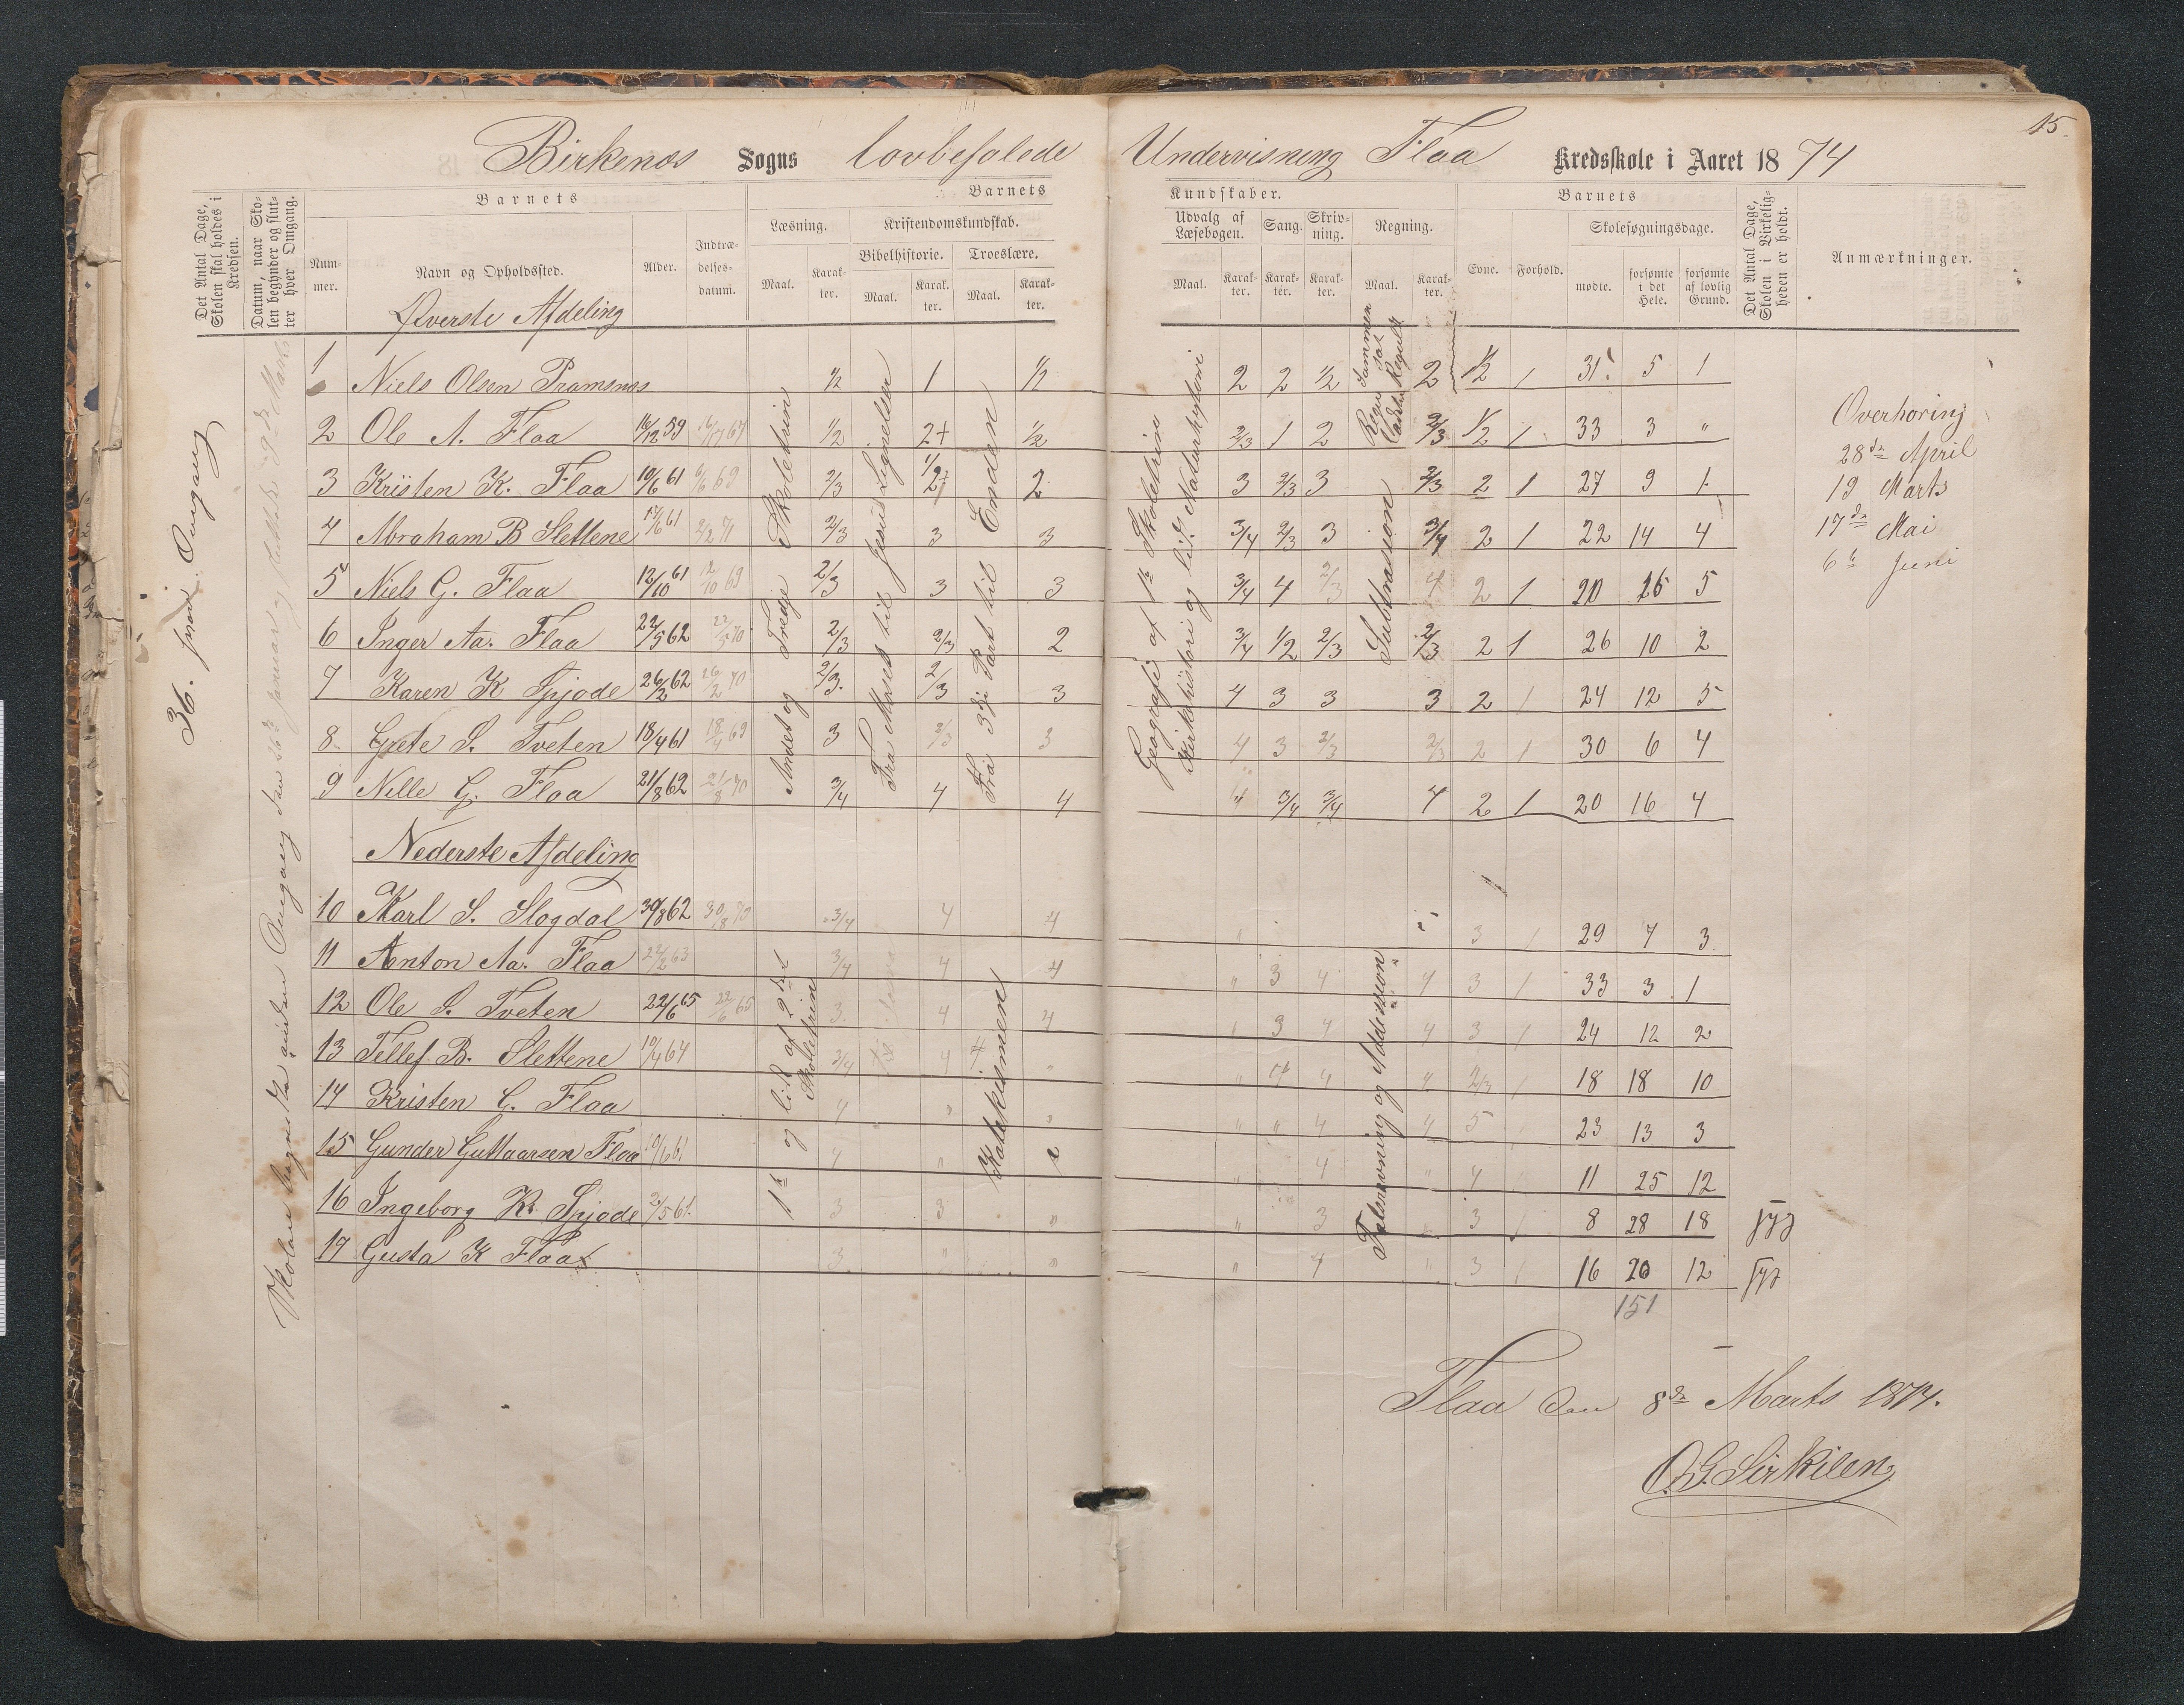 15.
Birkenæs Sogns lovbefalede Undervisning Flaa Kredsskole i Aaret 1874
Det Antal Dage, Skolen skal holdes i Kredsen.
Datum, naar Skolen begynder og slutter hver Omgang.
Barnets
Nummer.
Navn og Opholdssted.
Alder.
Indtrædelsesdatum.
Barnets
Læsning.
Maal.
Karakter.
Kristendomskundskab.
Bibelhistorie.
Maal.
Karakter.
Troeslære.
Maal.
Karakter.
Kundskaber.
Udvalg af Læsebogen.
Maal.
Karakter.
Sang.
Karakter.
Skrivning.
Karakter.
Regning.
Maal.
Karakter.
Barnets
Evne.
Forhold.
Skolesøgningsdage.
mødte.
forsømte i det Hele.
forsømte af lovlig Grund.
Det Antal Dage, Skolen i Virkeligheden er holdt.
Anmærkninger.
36. Omgang
Omgang den 26de Januar og
Øverste Afdeling
1 Niels Olsen Pramsnæs 1/2 1 1/2 2 2 1/2 2 1/2 1 31 5 1
2 Ole A. Flaa 16/12 59 1/2 2+ 1/2 2/3 1 2 2/3 1/2 1 33 3 "
3 Kristen K. Flaa 10/6 61 6/6 69 2/3 1/2 2 3 2/3 3 2/3 2 1 27 9 1
4 Abraham B Slettene 17/6 61 2/3 3 3 3/4 2/3 3 3/4 2 1 22 14 4
5 Niels G. Flaa 12/10 61 12/10 69 2/3 3 3 3/4 4 2/3 4 2 1 20 16 5
6 Inger Aa. Flaa 22/5 62 22/5 70 2/3 2/3 2 3/4 1/2 2/3 2/3 2 1 26 10 2
7 Karen K Spjode 26/2 62 26/2 70 2/3 2/3 3 4 3 3 3 2 1 24 12 5
8 Grete S. Tveten 18/4 61 18/4 69 3 2/3 3 4 3 2/3 2/3 2 1 30 6 4
9 Nelle G. Flaa 21/8 62 21/8 70 3/4 4 4 4 3/4 3/4 4 2 1 20 16 4
Andet og Tredje Skoletrin
Fra Moses til Jesus Lignelser
Fra 3die Part til Enden
Geografi af 1te Skoletrin
Kirkehistori og lidt Naturhistori
Sammensat
Regula
Subtrasion
Overhøring
28de April
19 Marts
17de Mai
6te Juni
Nederste Afdeling
10 Karl S. Slogdal 30/8 62 30/8 70 3/4 4 4 " 3 1 29 7 3
11 Anton Aa. Flaa 22/2 63 3/4 4 4 " 3 4 4 3 1 33 3 1
12 Ole S. Tveten 22/6 65 22/6 65 3 4 4 3 4 4 3 1 24 12 2
13 Tellef B. Slettene 10/4 64 3/4 4 " " 4 2/3 1 18 18 10
14 Kristen G. Flaa 4 " " " " 4 4 5 23 13 3
15 Gunder Guttaarsen Flaa 10/6 61 4 " " 4 " 4 11 25 12
16 Ingeborg K. Spjode 2/5 61 3 3 " " 3 3 1 8 28 18
17 Gusta K Flaa 3 " " " 4 " 3 1 16 20 12
1te og lidt af 2det Skoletrin
Katekismen
Talskrivning og Addission
151
Flaa den 8de Marts 1874.
O. G. Sirkilen